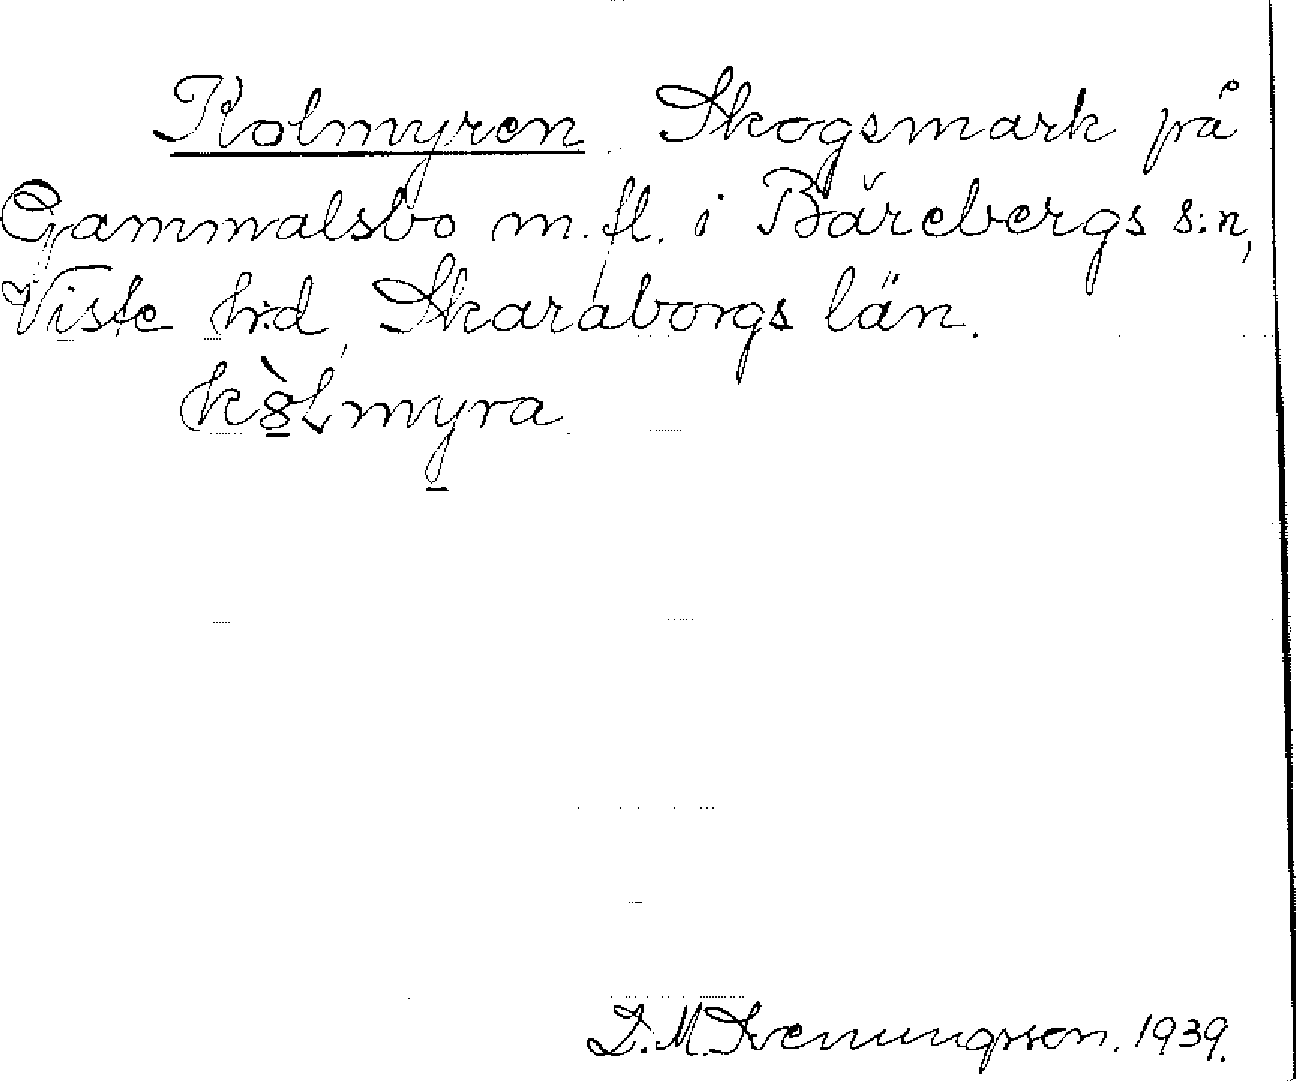 Kolmyren. Skogsmark på
Gammalsbo m.fl. i Bärebergs s:n,
Viste h:d, Skaraborgs län.
kòLmyra.
D.M. Svenungsson. 1939.